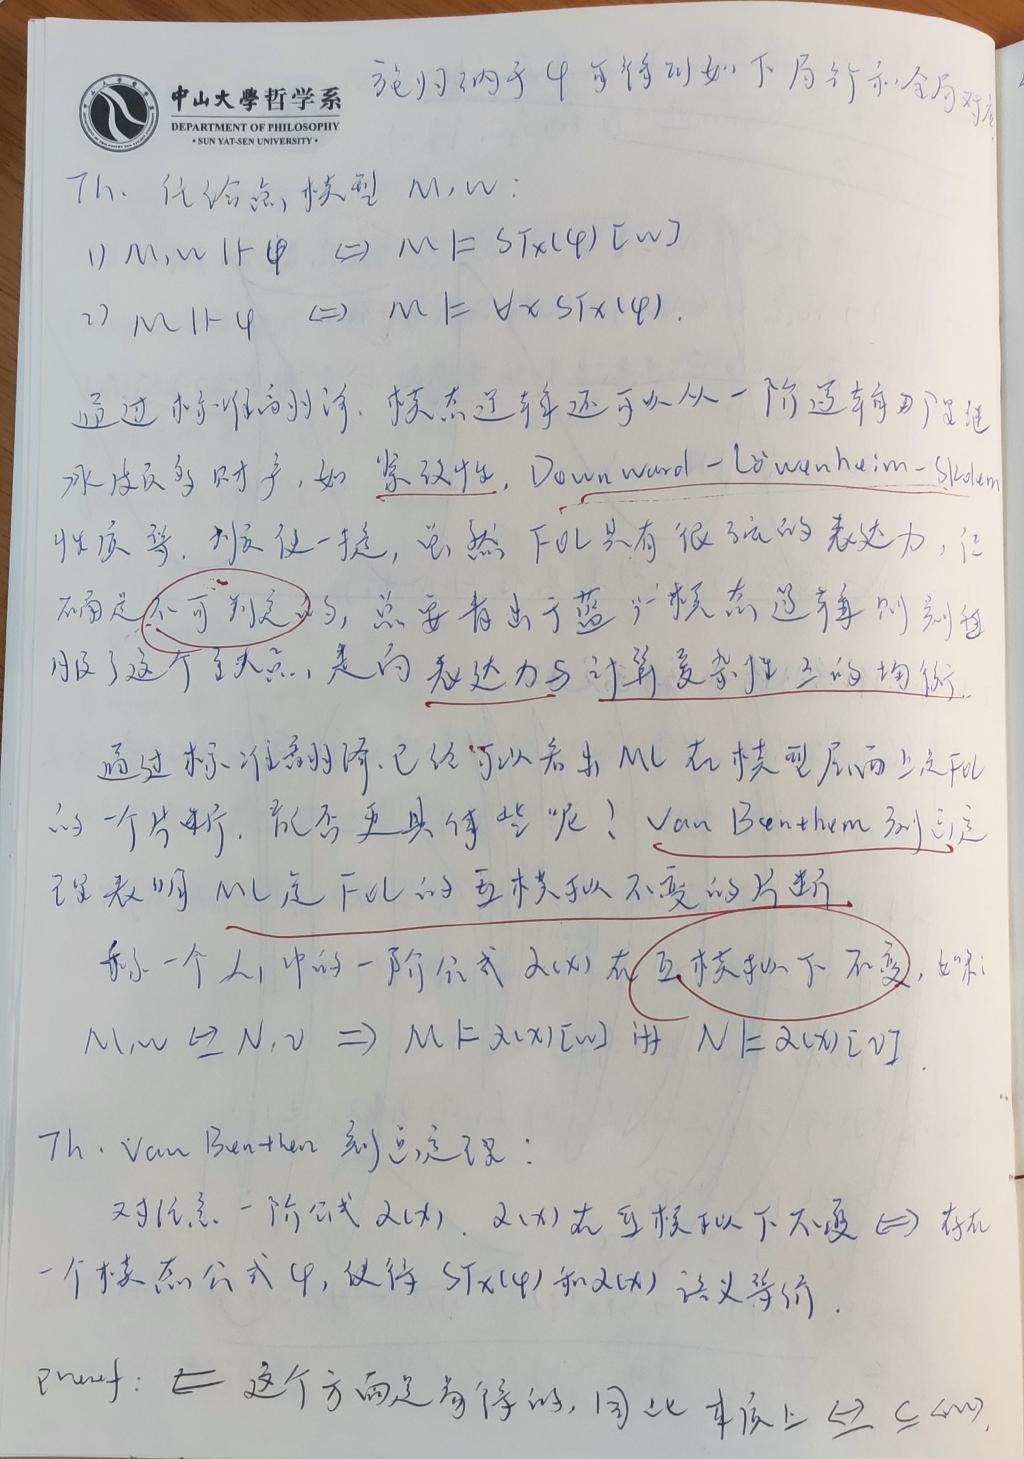 施归纳于φ可得到如下局部和全局对应
中山大學哲学系
DEPARTMENT OF PHILOSOPHY
• SUN YAT-SEN UNIVERSITY •
Th. 任给点模型 M, w:
1) M, w ⊩ φ ⟺ M ⊨ STx(φ)[w]
2) M ⊩ φ ⟺ M ⊨ ∀x STx(φ).
通过标准翻译, 模态逻辑还可以从一阶逻辑那里继
承成员的财产, 如 紧致性, Downward-Löwenheim-Skolem
性质等. 顺便一提, 虽然 FOL 具有很强的表达力, 但
确是不可判定的, 然而青出于蓝, 模态逻辑则
服了这个缺点, 是的 表达力与计算复杂性上的均衡.
通过标准翻译, 已经可以看出 ML 在模型层面上是FOL
的一个片断. 能否更具体些呢? Van Benthem 刻画定
理表明 ML 是 FOL 的互模拟不变的片断.
称一个 L₁ 中的一阶公式 α(x) 在互模拟下不变, 如果:
M, w ↔ N, v ⟹ M ⊨ α(x)[w] iff N ⊨ α(x)[v].
Th. Van Benthem 刻画定理:
对任意一阶公式 α(x), α(x) 在互模拟下不变 ⟺ 存在
一个模态公式 φ, 使得 STx(φ) 和 α(x) 语义等价.
Proof: ⇐ 这个方面是易得的, 因此 本质上 ↔ ⊆ ↭.